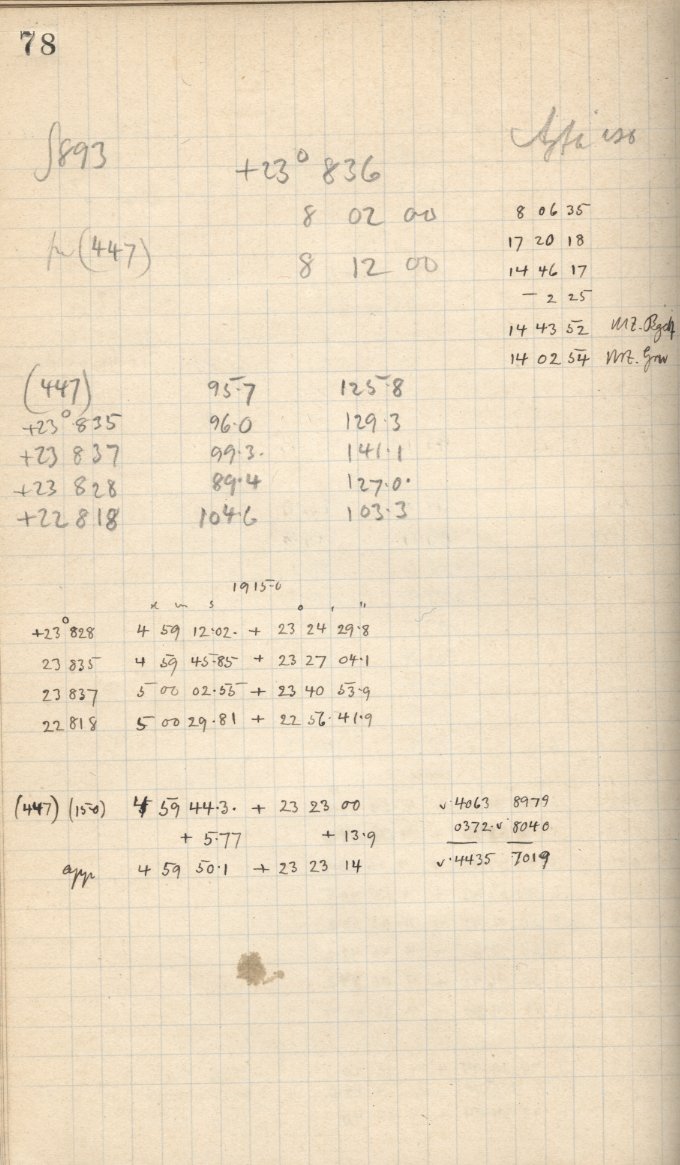 78
893 +23° 836
8 02 00
(447) 8 12 00
8 06 35
17 20 18
14 46 17
– 2 25
14 43 52 MZ.
14 02 54 MZ.
(447) 95.7 125.8
+23° 835 96.0 129.3
+23 837 99.3. 141.1
+23 828 89.4 127.0.
+22 818 104.6 103.3
1915.0
m s ° ' "
+23° 828 4 59 12.02. + 23 24 29.8
23 835 4 59 45.85 + 23 27 04.1
23 837 5 00 02.55 + 23 40 53.9
22 818 5 00 29.81 + 22 56. 41.9
(447) (15.0) 4 59 44.3. + 23 23 00 √.4063 8979
+ 5.77 + 13.9 0372.√ 8040
app 4 59 50.1 + 23 23 14 √.4435 7019